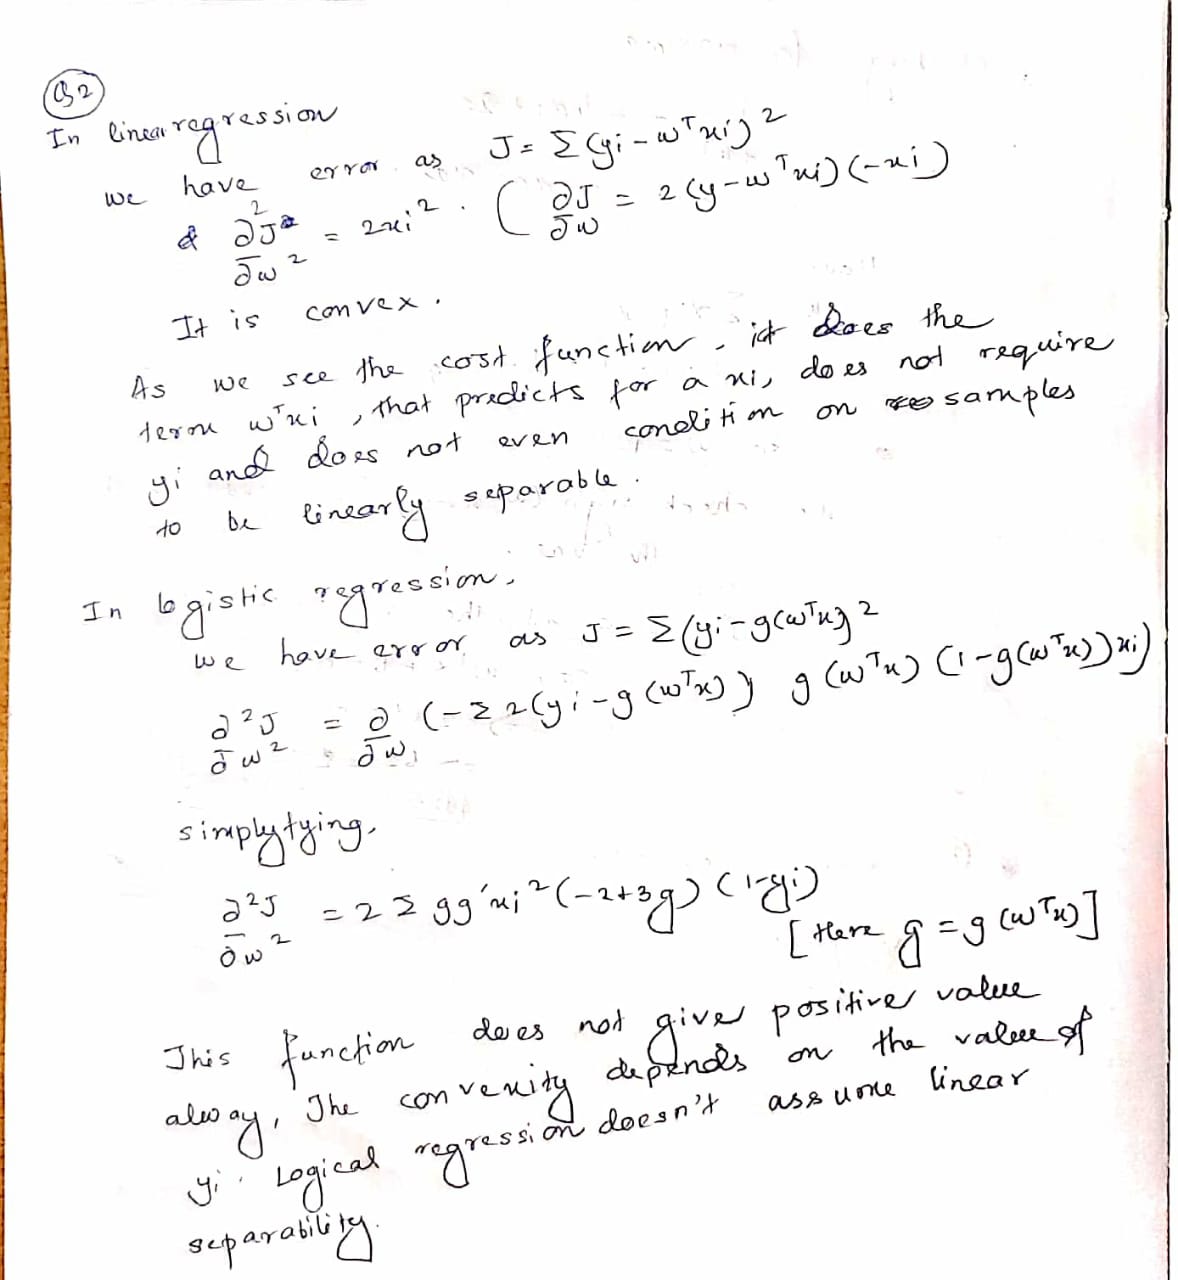 Q2
In linear regression
we have error as J = Σ(yi - wᵀxi)²
& ∂²J/∂w² = 2xi². ( ∂J/∂w = 2(y - wᵀxi)(-xi)
It is convex.
As we see the cost function, it does the
term wᵀxi, that predicts for a xi, does not require
yi and does not even condition on samples
to be linearly separable.
In logistic regression,
we have error as J = Σ(yi - g(wᵀx))²
∂²J/∂w² = ∂/∂w (-Σ 2(yi - g(wᵀx)) g(wᵀx) (1 - g(wᵀx)) xi)
simplytying,
∂²J/∂w² = 2 Σ gg'xi² (-2+3g) (1-yi)
[Here g = g(wᵀx)]
This function does not give positive value
alway, The convexity depends on the value of
yi. Logical regression doesn't assume linear
separability.